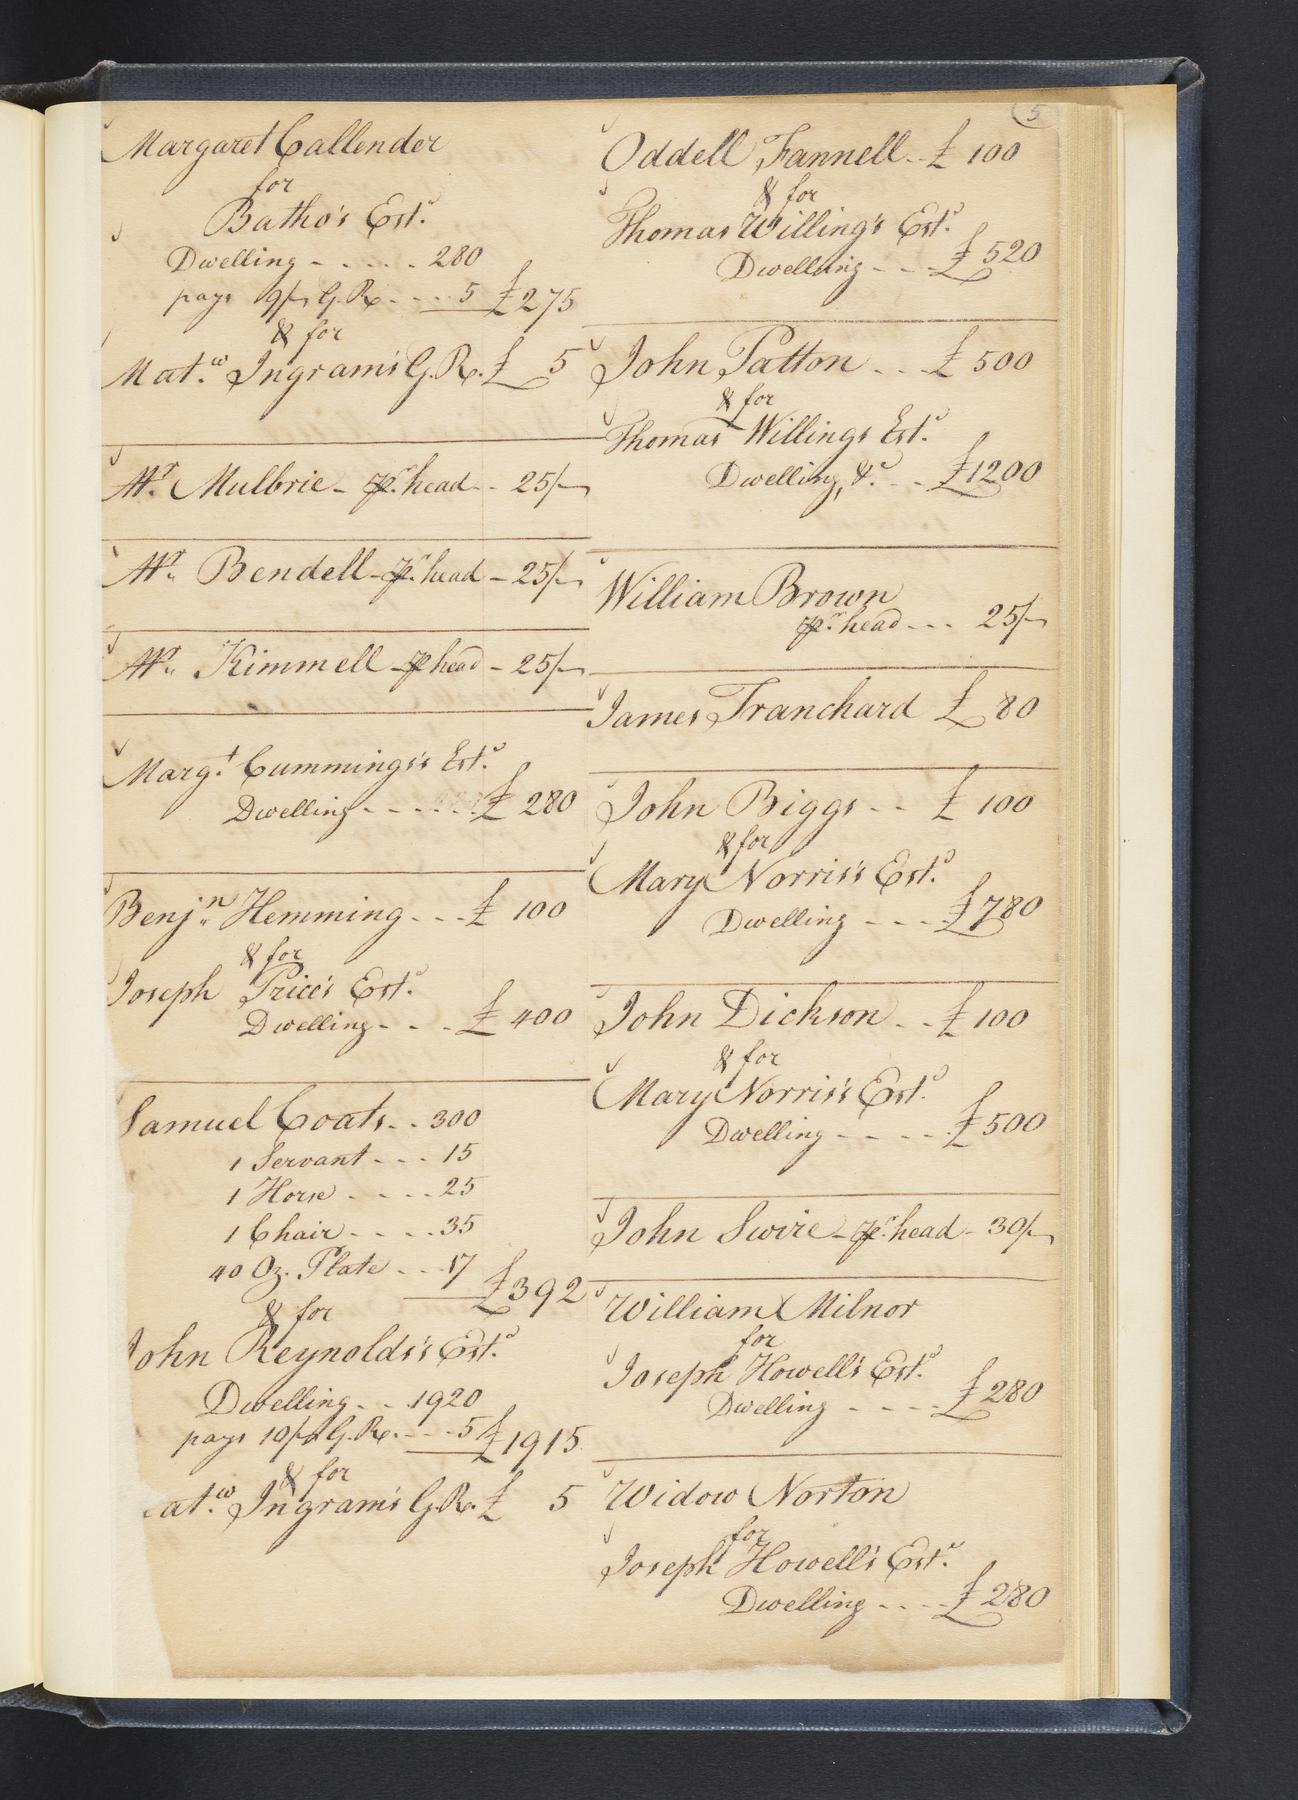 5
Margaret Callender
for
Batho's Est.e
Dwelling - - - - - 280
pays 9/- G. R. - - - - 5 £275
& for
Mat.w Ingram's G. R. £ 5
Mr. Mulbrie - pr. head - - 25/-
Mr. Bendell - pr. head - 25/-
Mr. Kimmell - p head - 25/-
Marg.t Cummings's Est.e
Dwelling - - - - - - £ 280
Benj.n Hemming - - - £ 100
& for
Joseph Price's Est.e
Dwelling - - - - £ 400
Samuel Coats - - 300
1 Servant - - - 15
1 Horse - - - - 25
1 Chair - - - - 35
40 Oz. Plate - - - 17 £392
& for
John Reynolds's Est.e
Dwelling - - - 1920
pays 10/- G. R. - - - 5 £1915
& for
at.w Ingram's G. R. £ 5
Oddell Fannell - - £ 100
& for
Thomas Willing's Est.e
Dwelling - - - £520
John Patton - - - £ 500
& for
Thomas Willings Est.e
Dwelling, &c. - - £1200
William Brown
pr. head - - - 25/-
James Tranchard £ 80
John Biggs - - £ 100
& for
Mary Norris's Est.e
Dwelling - - - - £780
John Dickson - - £100
& for
Mary Norris's Est.e
Dwelling - - - - - £500
John Swire - pr. head - 30/-
William Milnor
for
Joseph Howell's Est.e
Dwelling - - - - £280
Widow Norton
for
Joseph Howell's Est.e
Dwelling - - - - £280